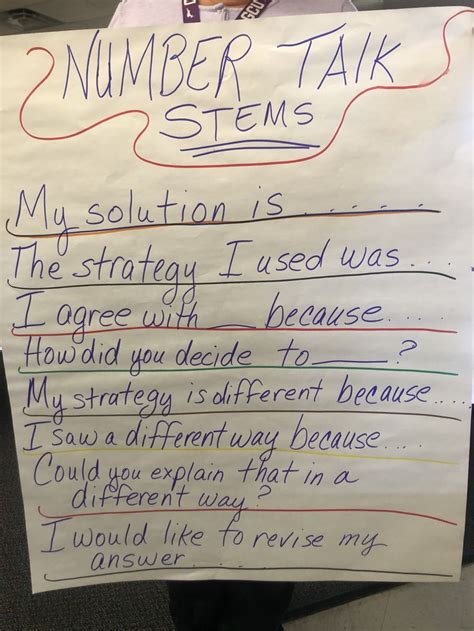 GCU
NUMBER TALK
STEMS
My solution is . . . . . .
The strategy I used was . . .
I agree with ___ because . . . .
How did you decide to ____ ?
My strategy is different because . . . .
I saw a different way because . . . .
Could you explain that in a
different way?
I would like to revise my
answer . . . .